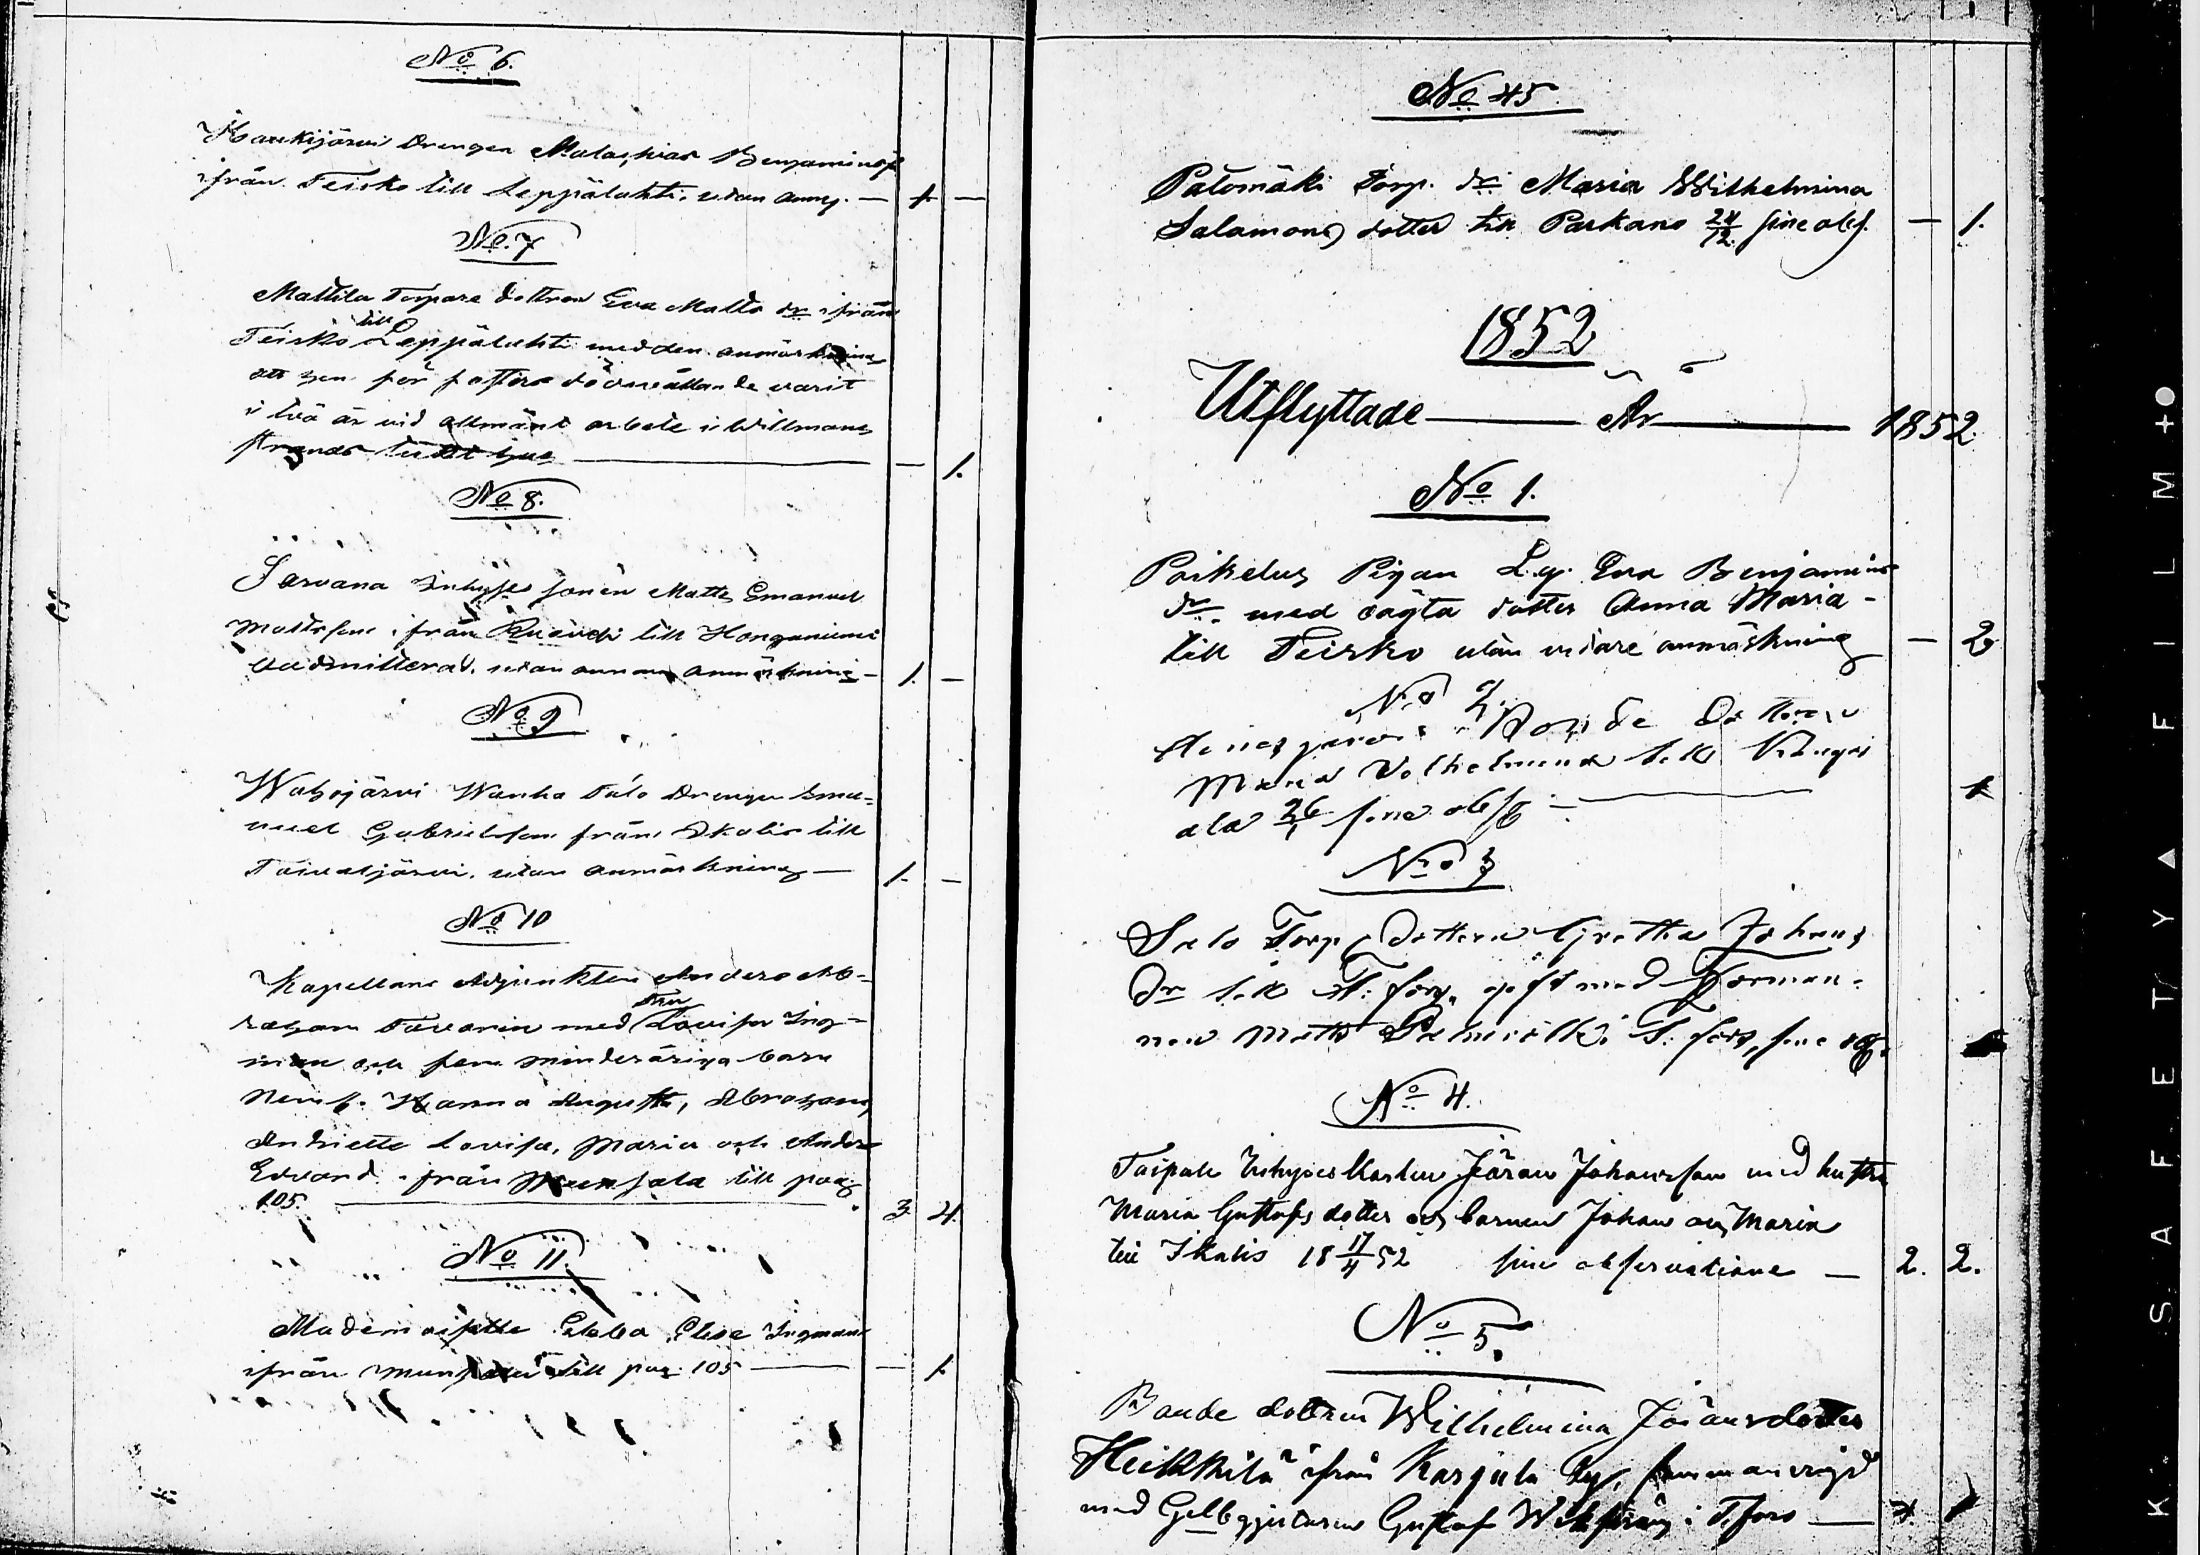 No 6.
Haukijärvi Drengen Malachias Benjaminsf
ifrån Teisko till Leppälahti, utan anmg. — 1 —
No. 7
Mattila Torpare dottren Eva Matts dr ifrån
Teisko till Leppälahti med den anmärkning
att hon för varit
i två år vid allmänt arbete i Willmans
strands — 1.
No 8.
Sarvana Inhyses sonen Matts Emanuel
Mattsson ifrån till Honganiemi
utan annan anmärkning — 1. —
No 9
Wahojärvi Wanha Talo Drengen Ema-
nuel Gabrielsson från Ikalis till
Taivaljärvi, utan anmärkning — 1. —
No 10
Kapellans Adjunkten Anders Ab-
raham Favorin med Fru Lovisa Ing-
man och fem minderåriga barn
Neml. Hanna Augusta, Abraham,
Andriette Lovisa, Maria och Anders
Edvard ifrån Munsala till pag
105. — 3 4.
No 11.
Mademoiselle Ebba Elise Ingman
ifrån Munsala till pag. 105 — — 1
No 45
Palomäki Torp. dr. Maria Wilhelmina
Salamons dotter till Parkano 24/12 sine obs. — 1.
1852
Utflyttade — År — 1852
No 1.
Poikelus Pigan L.g. Eva Benjamins
dr. med oägta dotter Anna Maria
till Teisko utan vidare anmärkning — 2
No 2.
Bonde Dottren
Maria Vilhelmina till
ala 26/1 sine obs — 1
No 3
Salo Torp. Dottren Gretha Johans
Dr till T:fors, gift med Forman-
nen Matts T:fors, sine obs.
No 4.
Taipale Inhyses Karlen Jöran Johansson med hustru
Maria Gustafs dotter och barnen Johan och Maria
till Ikalis 18 17/4 52 sine observatione — 2. 2.
No 5.
Bonde dottren Wilhelmina Jöransdotter
Heikkilä ifrån Karjula By, sammanvigd
med Gelbgjutaren Gustaf i T.fors — 1
K. SAFETY ▲ FILM +●